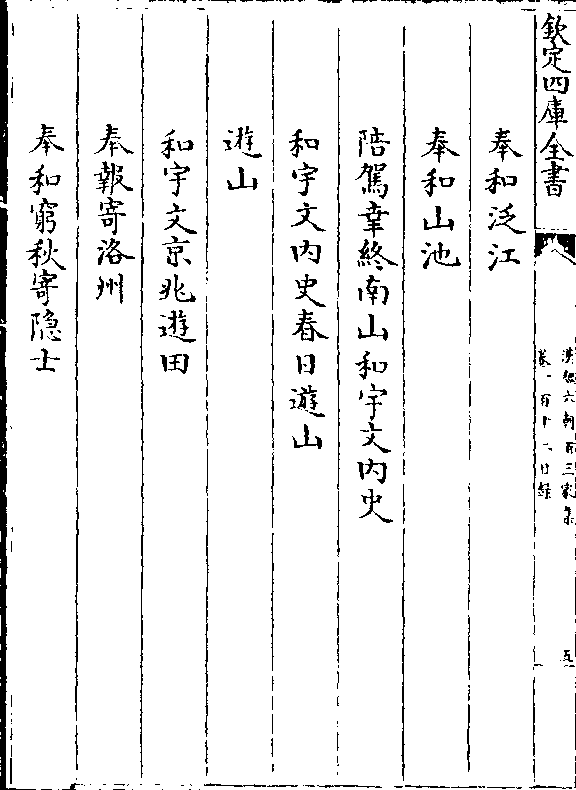 欽定四庫全書
漢魏六朝百三家集
卷一百十二目錄
五
奉和泛江
奉和山池
陪駕幸終南山和宇文内史
和宇文内史春日遊山
遊山
和宇文京兆遊田
奉報寄洛州
奉和窮秋寄隐士